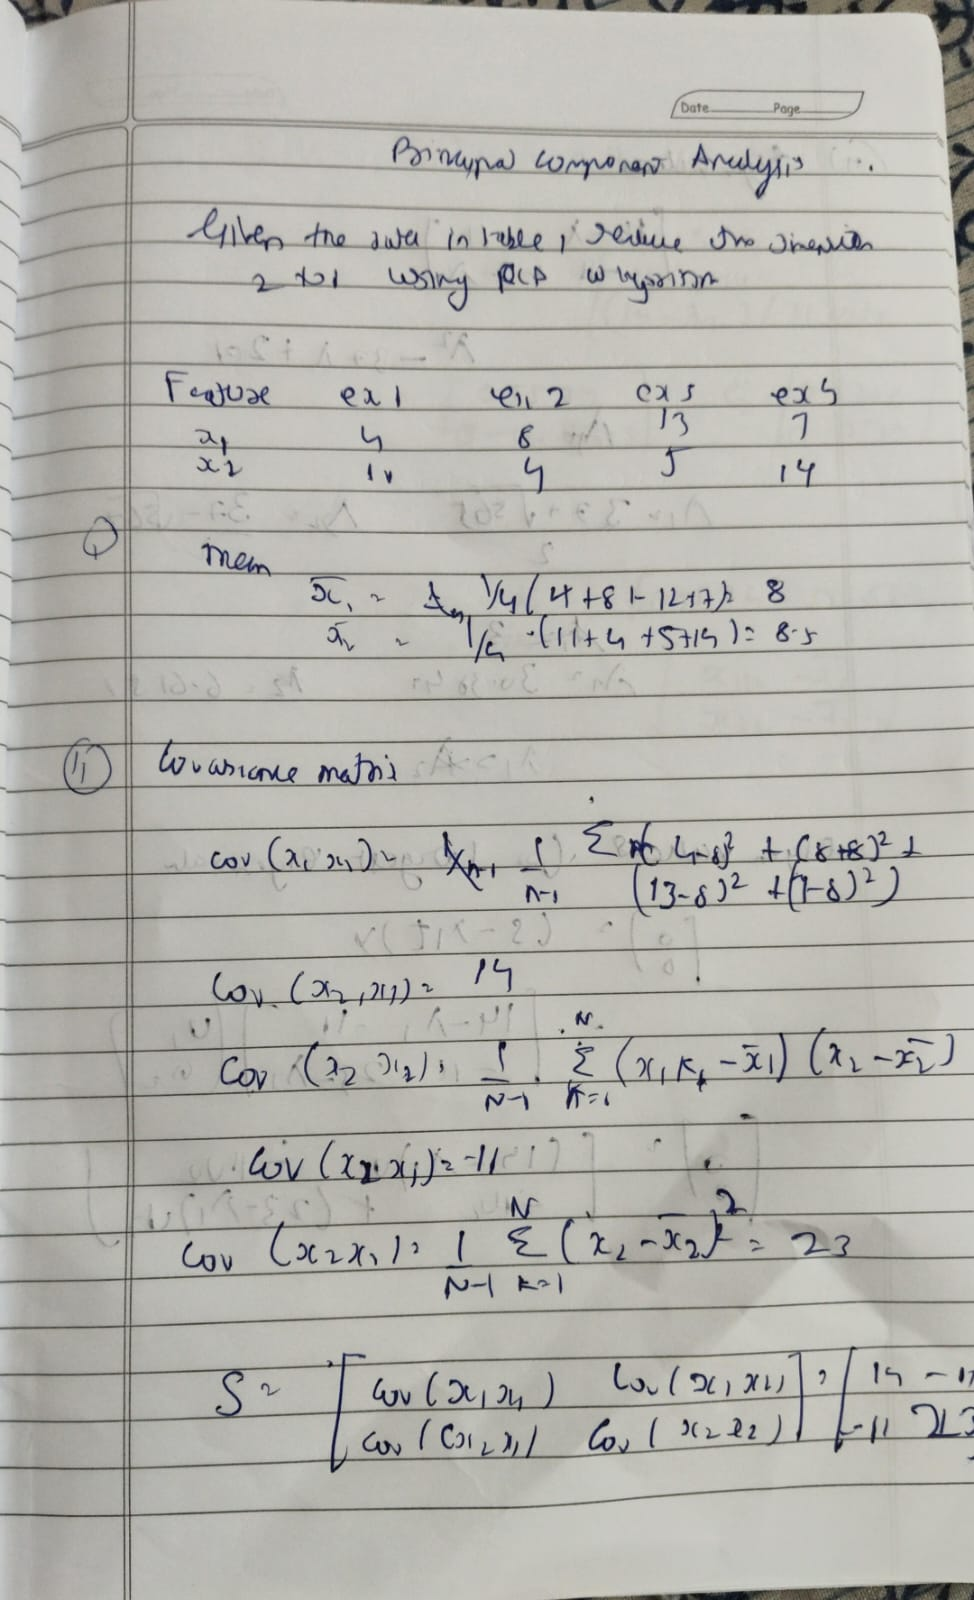 Date Page
Principal Component Analysis
Given the data in table, reduce the dimension
2 to 1 using PCA algorithm
Feature ex1 ex 2 ex 3 ex 4
x₁ 4 8 13 7
x2 11 4 5 14
mean
x̄₁ = 1/4 (4+8+12+7)= 8
x̄₂ = 1/4 ·(11+4+5+14)= 8.5
(11) Covariance matrix
cov (x₁ x₁) = 1/n-1 Σ (4-8)² + (8+8)² +
(13-8)² +(7-8)²)
Cov. (x₂, x₁) = 14
Cov (x₂ x₂) = 1/N-1 Σ N K=1 (x₁ₖ - x̄₁) (x₂ - x̄₂)
Cov (x₂ x₁) = -11
Cov (x₂x₁) = 1/N-1 Σ N K=1 (x₂ - x̄₂)² = 23
S = [ Cov (x₁ x₁) Cov (x₁ x₂) ] = [ 14 -11
Cov (x₂ x₁) Cov (x₂ x₂) -11 23